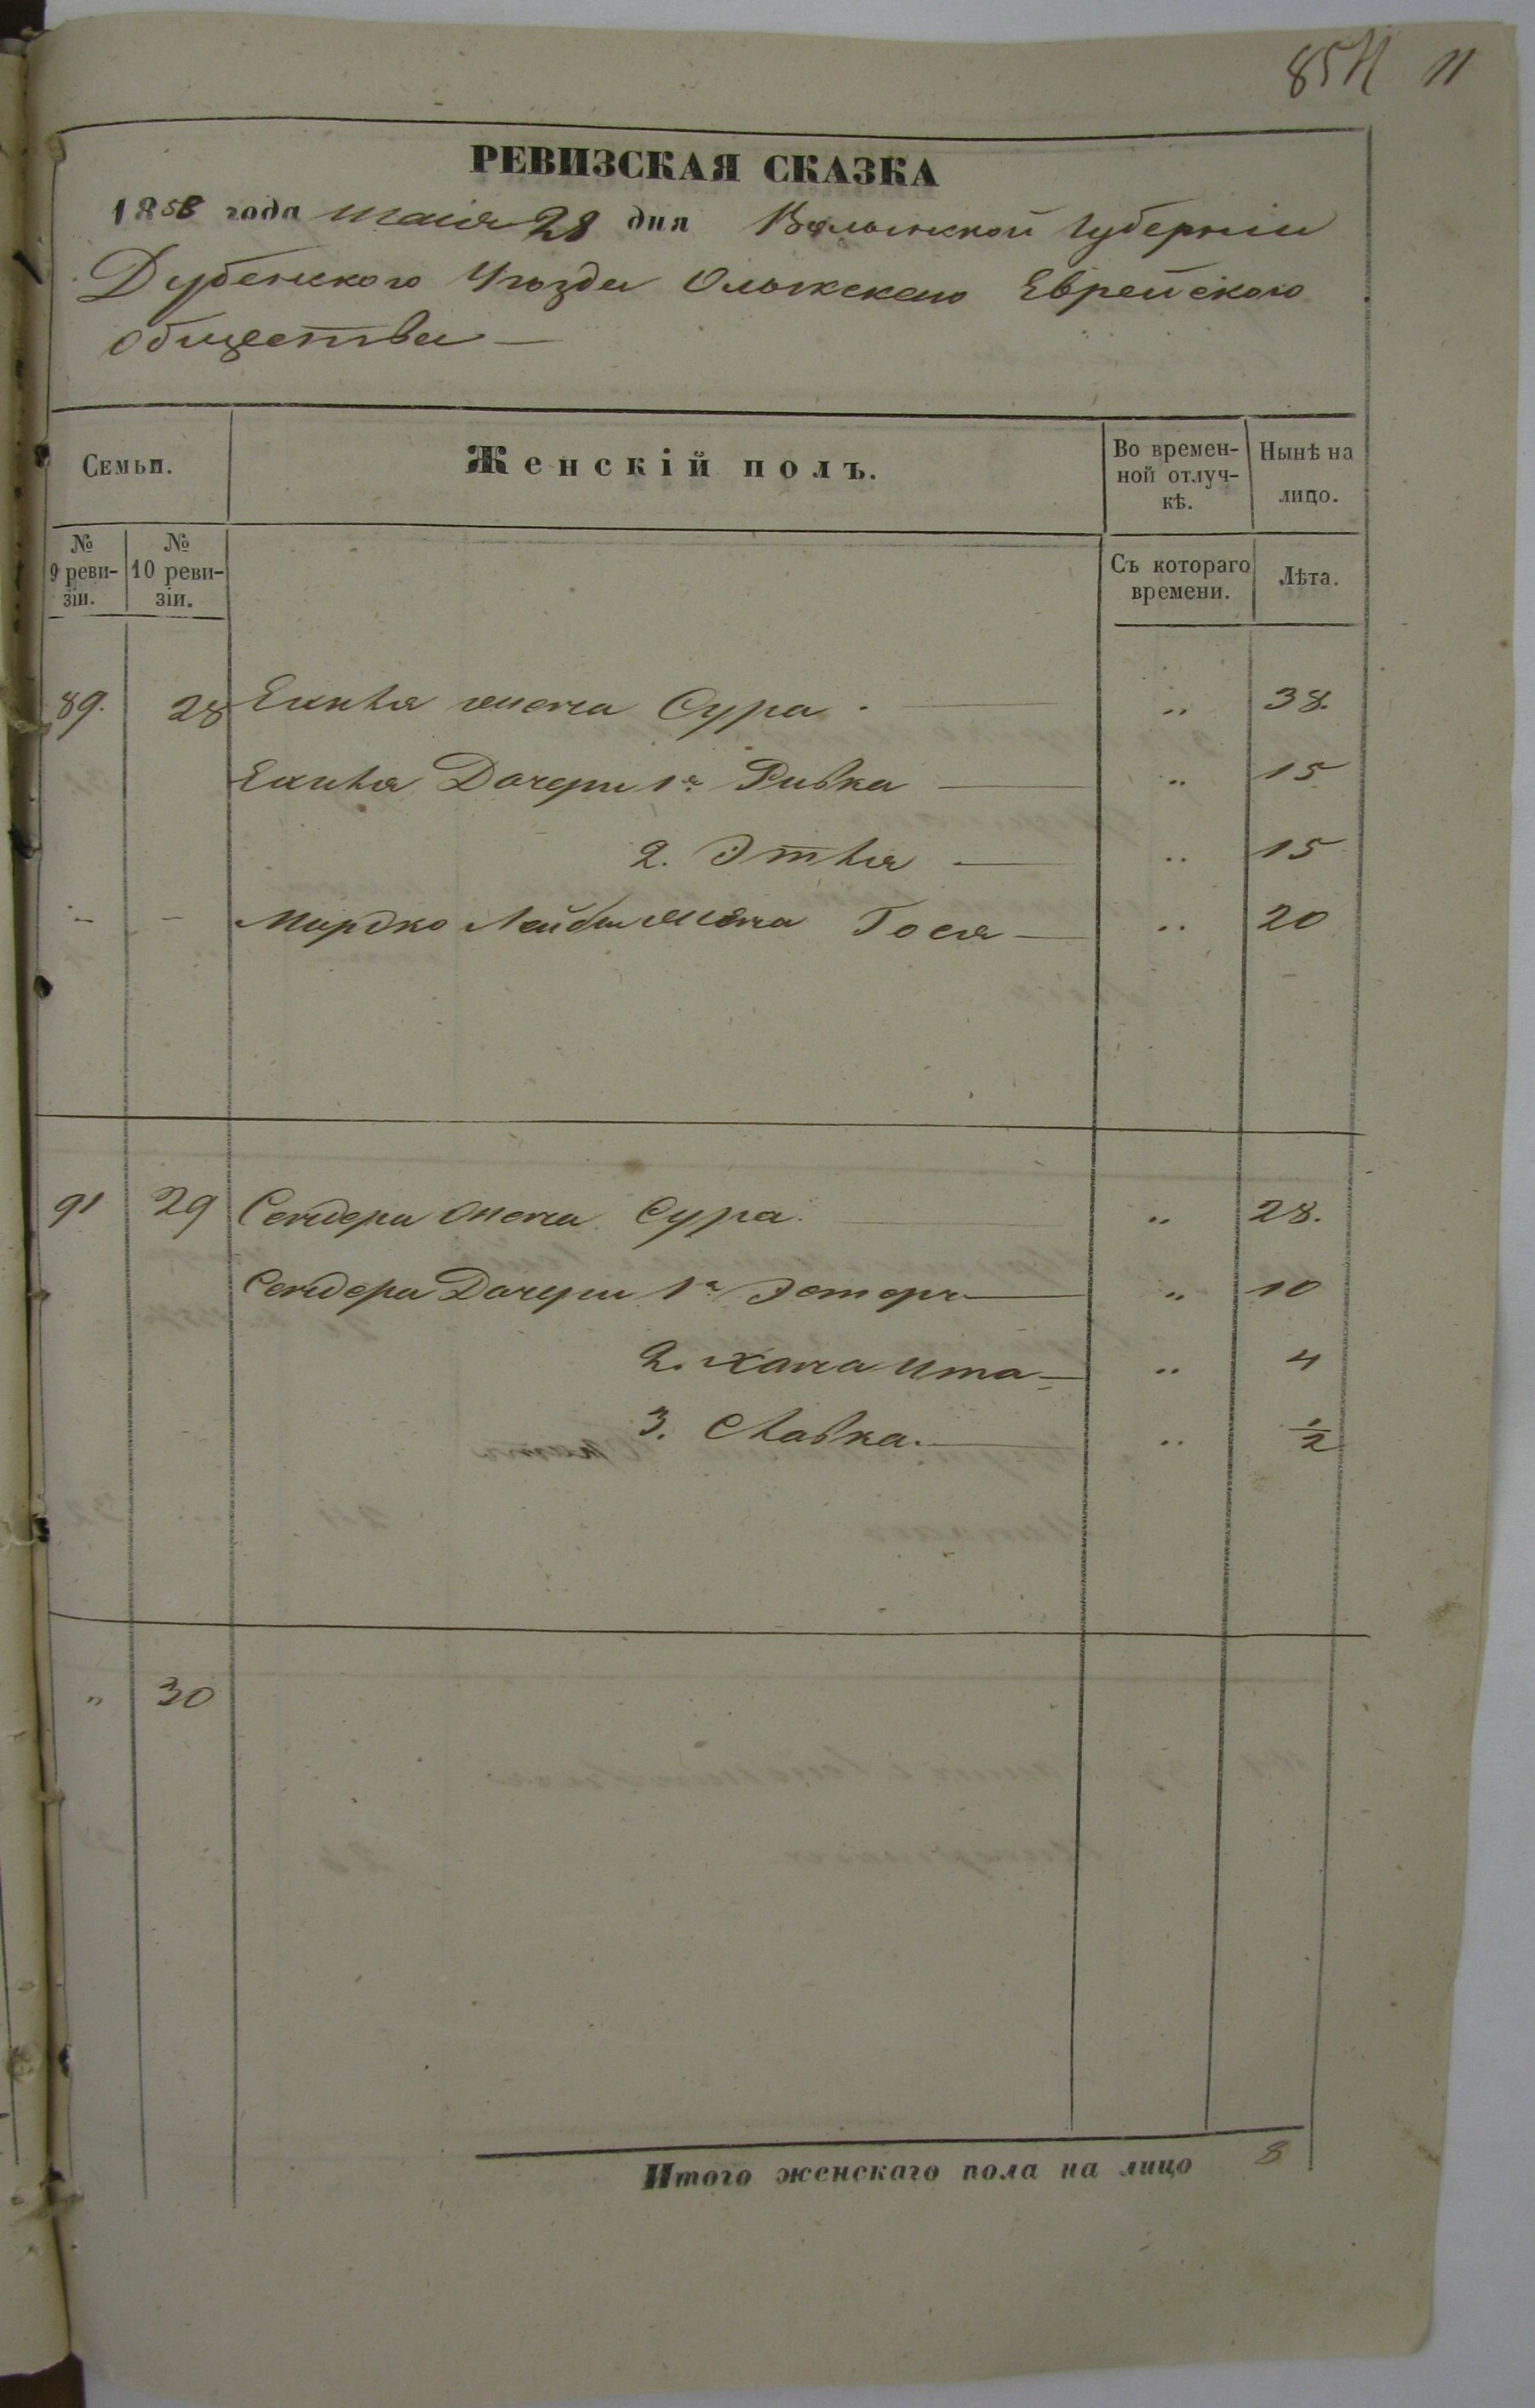 85 11
РЕВИЗСКАЯ СКАЗКА
1858 года маія 28 дня Волынской Губерніи
Дубенского Уѣзда Олыкскаго Еврейского
общества —
Семьи.
Женскій полъ.
Во времен-
ной отлуч-
кѣ.
Нынѣ на
лицо.
№
9 реви-
зіи.
№
10 реви-
зіи.
Съ котораго
времени.
Лѣта.
89. 28 жена Сура . — „ 38.
Дочери 1я Ривка — „ 15
2. Этля — „ 15
— — Мордко Лейбы жена Гося — „ 20
91 29 Сендера жена Сура. — „ 28.
Сендера Дочери 1я Эстеръ — „ 10
2. Хана Ита — „ 4
3. Славка. — „ 1/2
„ 30
Итого женскаго пола на лицо 8